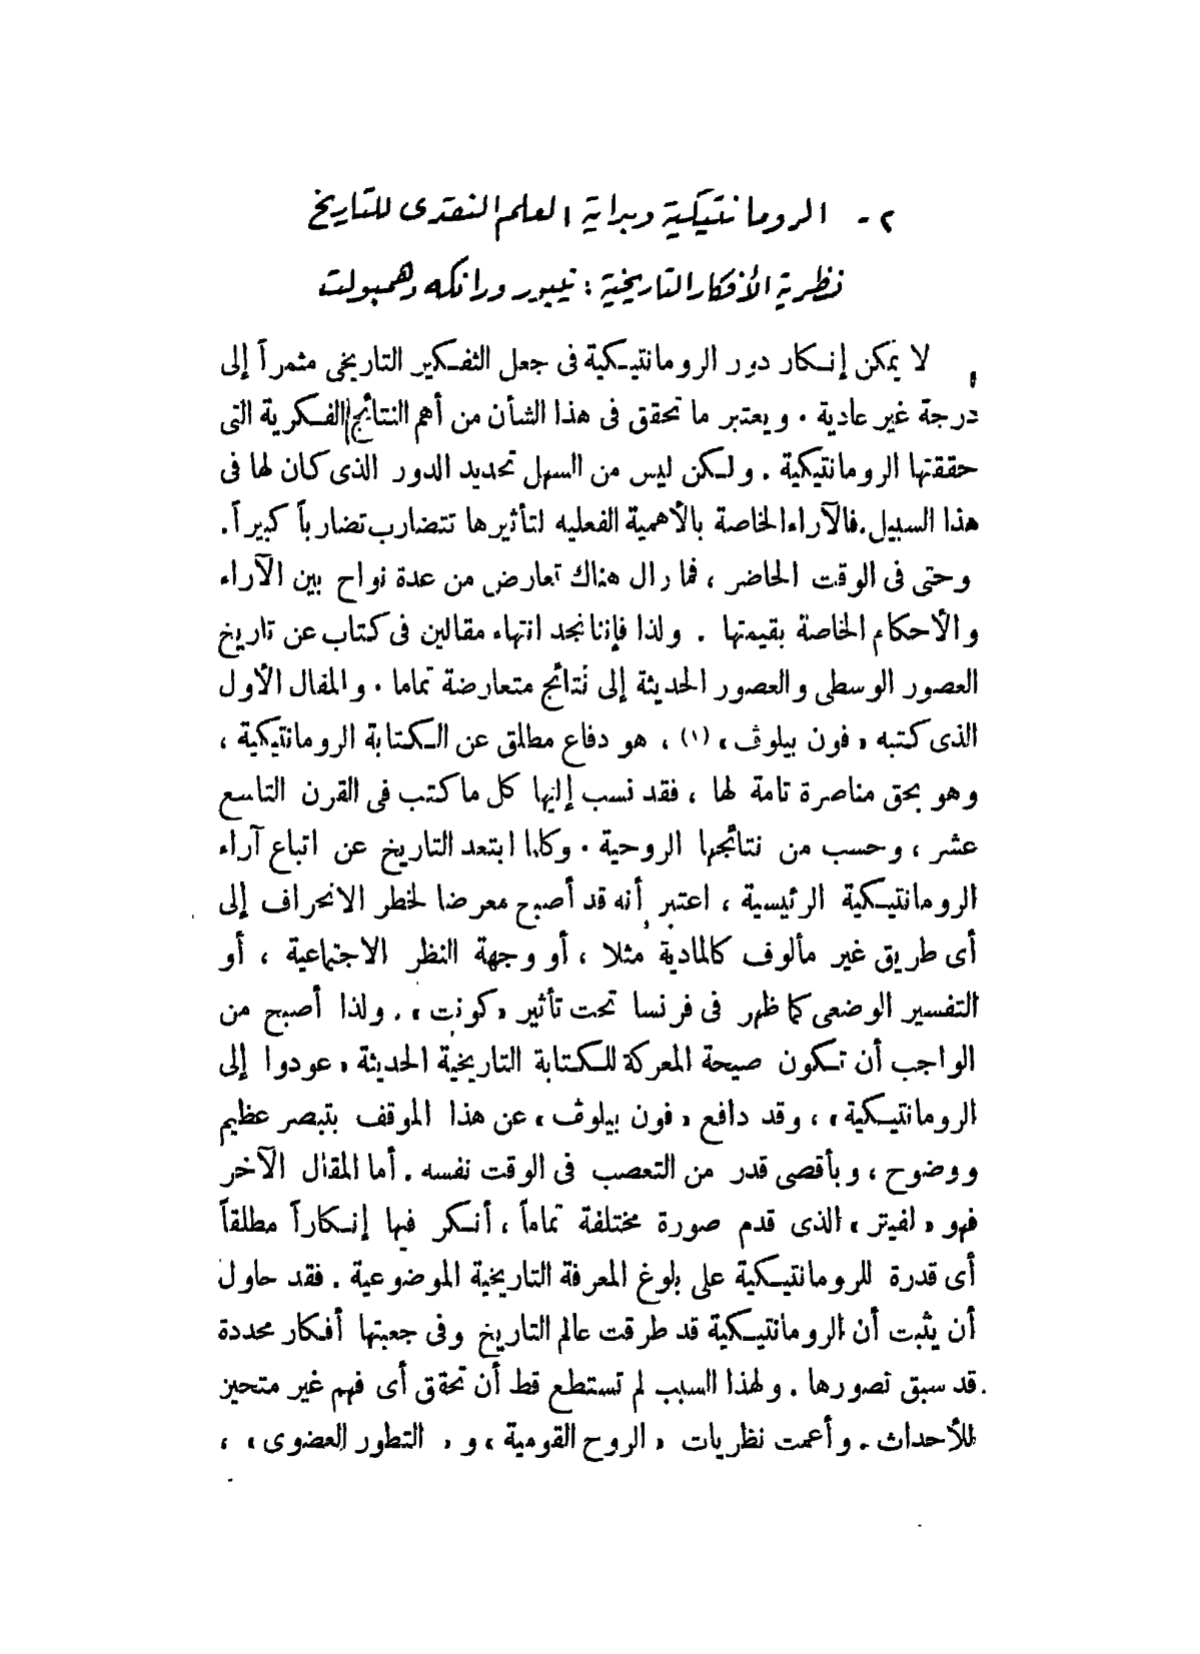 ٢ - الرومانتيكية وبداية العلم النقدى للتاريخ
نظرية الأفكار التاريخية : نيبور ورانكه وهمبولت
لا يمكن إنكار دور الرومانتيكية فى جعل التفكير التاريخى مثمراً إلى
درجة غير عادية . ويعتبر ما تحقق فى هذا الشأن من أهم النتائج الفكرية التى
حققتها الرومانتيكية . ولكن ليس من السهل تحديد الدور الذى كان لها فى
هذا السبيل . فالآراء الخاصة بالأهمية الفعليه لتأثيرها تتضارب تضارباً كبيراً .
وحتى فى الوقت الحاضر ، فما زال هناك تعارض من عدة نواح بين الآراء
والأحكام الخاصة بقيمتها . ولذا فإننا نجد انتهاء مقالين فى كتاب عن تاريخ
العصور الوسطى والعصور الحديثة إلى نتائج متعارضة تماما . والمقال الأول
الذى كتبه « فون بيلوڤ » (١) ، هو دفاع مطلق عن الكتابة الرومانتيكية ،
وهو بحق مناصرة تامة لها ، فقد نسب إليها كل ما كتب فى القرن التاسع
عشر ، وحسب من نتائجها الروحية . وكلما ابتعد التاريخ عن اتباع آراء
الرومانتيكية الرئيسية ، اعتبر أنه قد أصبح معرضا لخطر الانحراف إلى
أى طريق غير مألوف كالمادية مثلا ، أو وجهة النظر الاجتماعية ، أو
التفسير الوضعى كما ظهر فى فرنسا تحت تأثير « كونت » . ولذا أصبح من
الواجب أن تكون صيحة المعركة للكتابة التاريخية الحديثة « عودوا إلى
الرومانتيكية » ، وقد دافع « فون بيلوڤ » عن هذا الموقف بتبصر عظيم
ووضوح ، وبأقصى قدر من التعصب فى الوقت نفسه . أما المقال الآخر
فهو « لفيتر » الذى قدم صورة مختلفة تماماً ، أنكر فيها إنكاراً مطلقاً
أى قدرة للرومانتيكية على بلوغ المعرفة التاريخية الموضوعية . فقد حاول
أن يثبت أن الرومانتيكية قد طرقت عالم التاريخ وفى جعبتها أفكار محددة
قد سبق تصورها . ولهذا السبب لم تستطع قط أن تحقق أى فهم غير متحيز
للأحداث . وأعمت نظريات « الروح القومية » و « التطور العضوى » ،